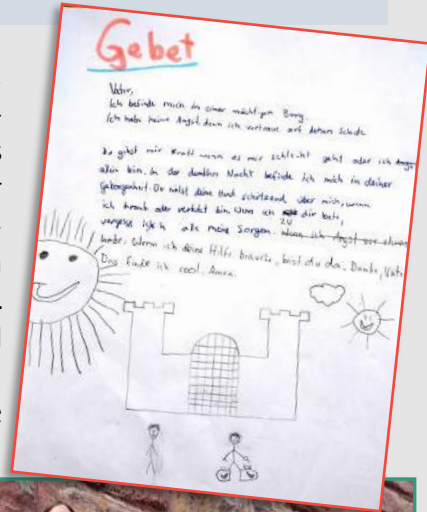 Gebet
Vater,
Ich befinde mich in einer mächtigen Burg.
Ich habe keine Angst, denn ich vertraue auf deinen Schutz.
Du gibst mir Kraft wenn es mir schlecht geht oder ich
allein bin. In der dunklen Nacht befinde ich mich in deiner
Geborgenheit. Du hälst deine Hand schützend über mich, wenn
ich krank oder verletzt bin. Wenn ich zu dir bete,
vergess ich all meine Sorgen. Wenn ich Angst vor etwas
habe. Wenn ich deine Hilfe brauche, bist du da. Danke, Vater
Das finde ich cool. Amen.